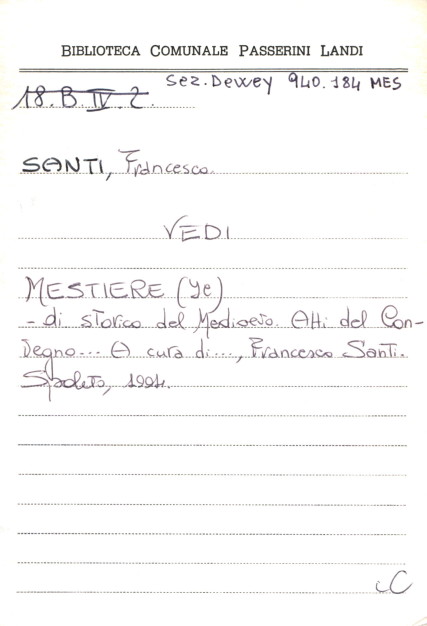 BIBLIOTECA COMUNALE PASSERINI LANDI
Sez. Dewey 940.184 MES
18.B.IV.2.
SANTI, Francesco.
VEDI
MESTIERE (Ye)
- di storico del Medioevo. Atti del Con-
vegno... A cura di..., Francesco Santi.
Spoleto, 1994.
iC